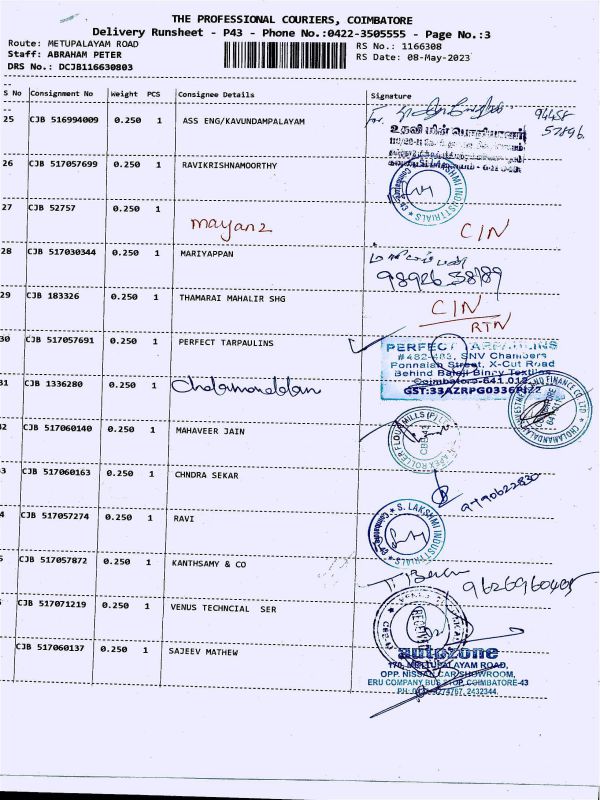 THE PROFESSIONAL COURIERS, COIMBATORE
Delivery Runsheet - P43 - Phone No.:0422-3505555 - Page No.:3
Route: METUPALAYAM ROAD RS No.: 1166308
Staff: ABRAHAM PETER RS Date: 08-May-2023
DRS No.: DCJB116630803
S No Consignment No Weight PCS Consignee Details Signature
25 CJB 516994009 0.250 1 ASS ENG/KAVUNDAMPALAYAM For 94458
57896
உதவி மின் பொறியாளர்
26 CJB 517057699 0.250 1 RAVIKRISHNAMOORTHY
S. LAKSHMI INDUSTRIALS
27 CJB 52757 0.250 1 Mayan2 CIN
28 CJB 517030344 0.250 1 MARIYAPPAN மாரியப்பன்
98926 38189
29 CJB 183326 0.250 1 THAMARAI MAHALIR SHG CIN
RTN
30 CJB 517057691 0.250 1 PERFECT TARPAULINS
PERFECT TARPAULINS
#482-483, SNV Chambers
Ponnaian Street, X-Cut Road
Behind Balaji Binny Textiles
Coimbatore-641 012.
31 CJB 1336280 0.250 1 Cholamandalam
CHOLAMANDALAM INVESTMENT AND FINANCE CO LTD
32 CJB 517060140 0.250 1 MAHAVEER JAIN
33 CJB 517060163 0.250 1 CHNDRA SEKAR
9790622830
34 CJB 517057274 0.250 1 RAVI
S. LAKSHMI INDUSTRIALS
Coimbatore
CJB 517057872 0.250 1 KANTHSAMY & CO
CJB 517071219 0.250 1 VENUS TECHNCIAL SER
CJB 517060137 0.250 1 SAJEEV MATHEW
autozone
170, METTUPALAYAM ROAD,
OPP. NISSAN CAR SHOWROOM,
ERU COMPANY BUS STOP, COIMBATORE-43